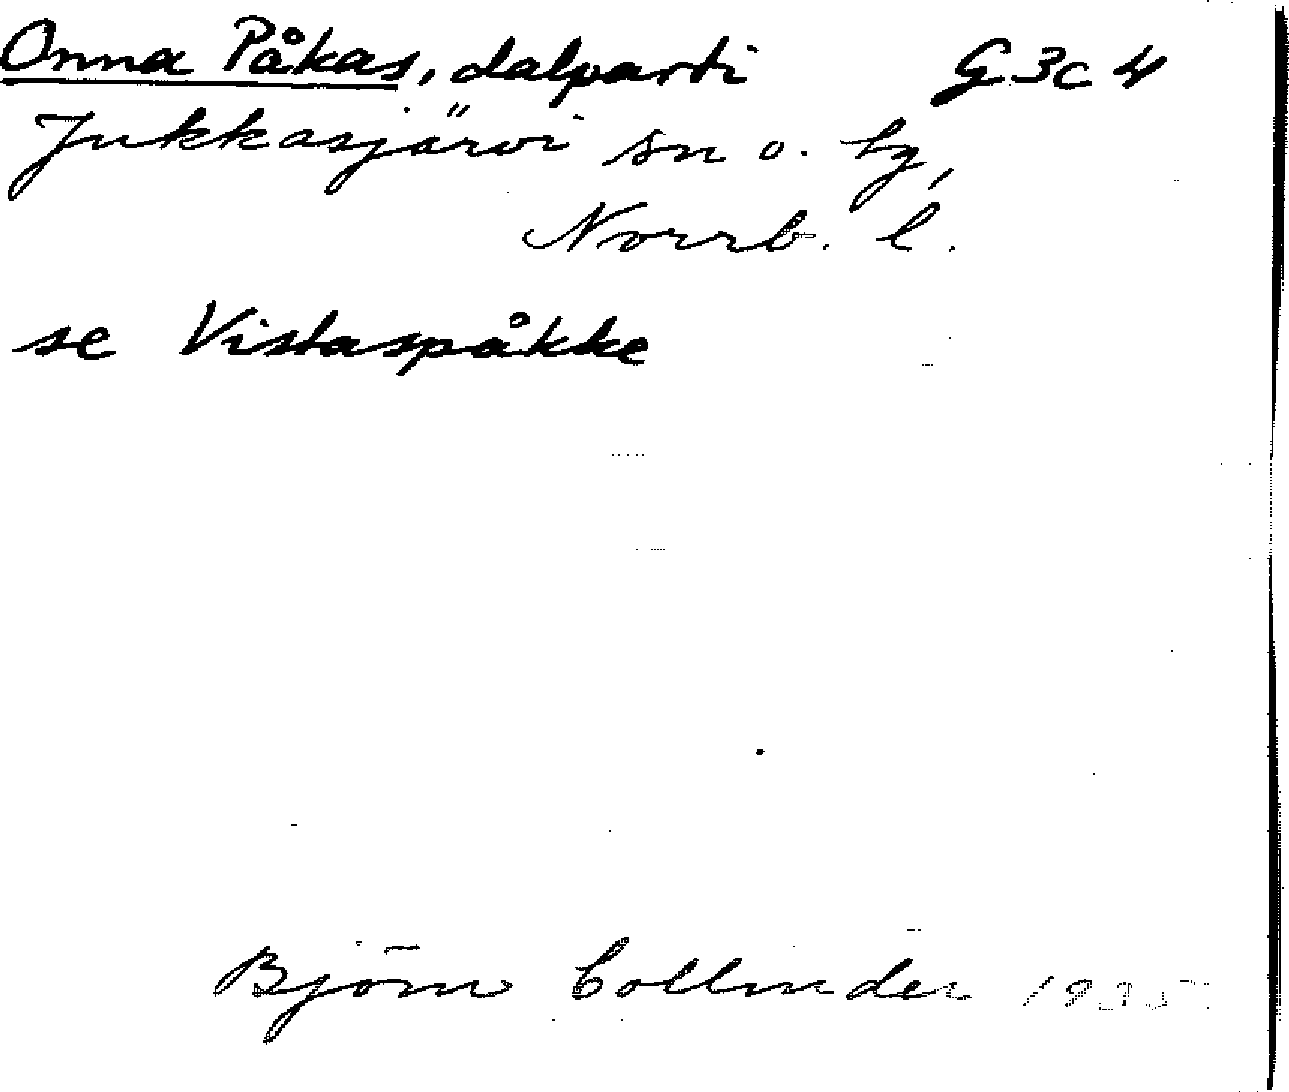 Onna Påkas, dalparti G 3c 4
Jukkasjärvi sn o. tg,
Norrb. l.
se Vistaspåkke
Björn Collinder 1935